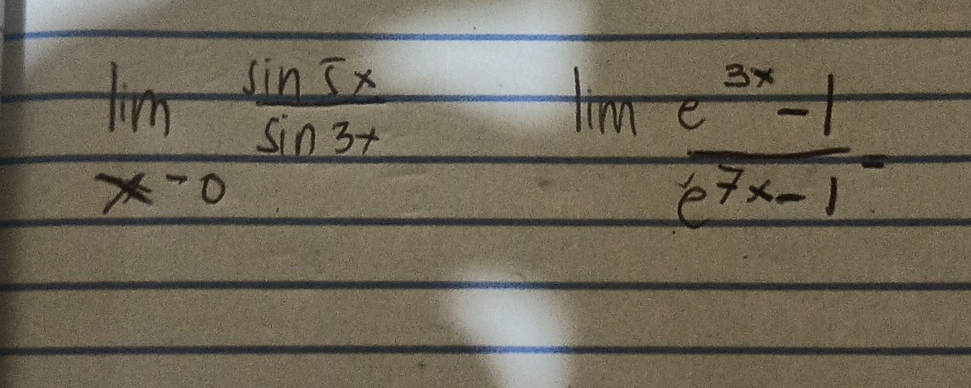 lim sin 5x / sin 3x
x - 0
lim e^3x - 1 / e^7x - 1 =